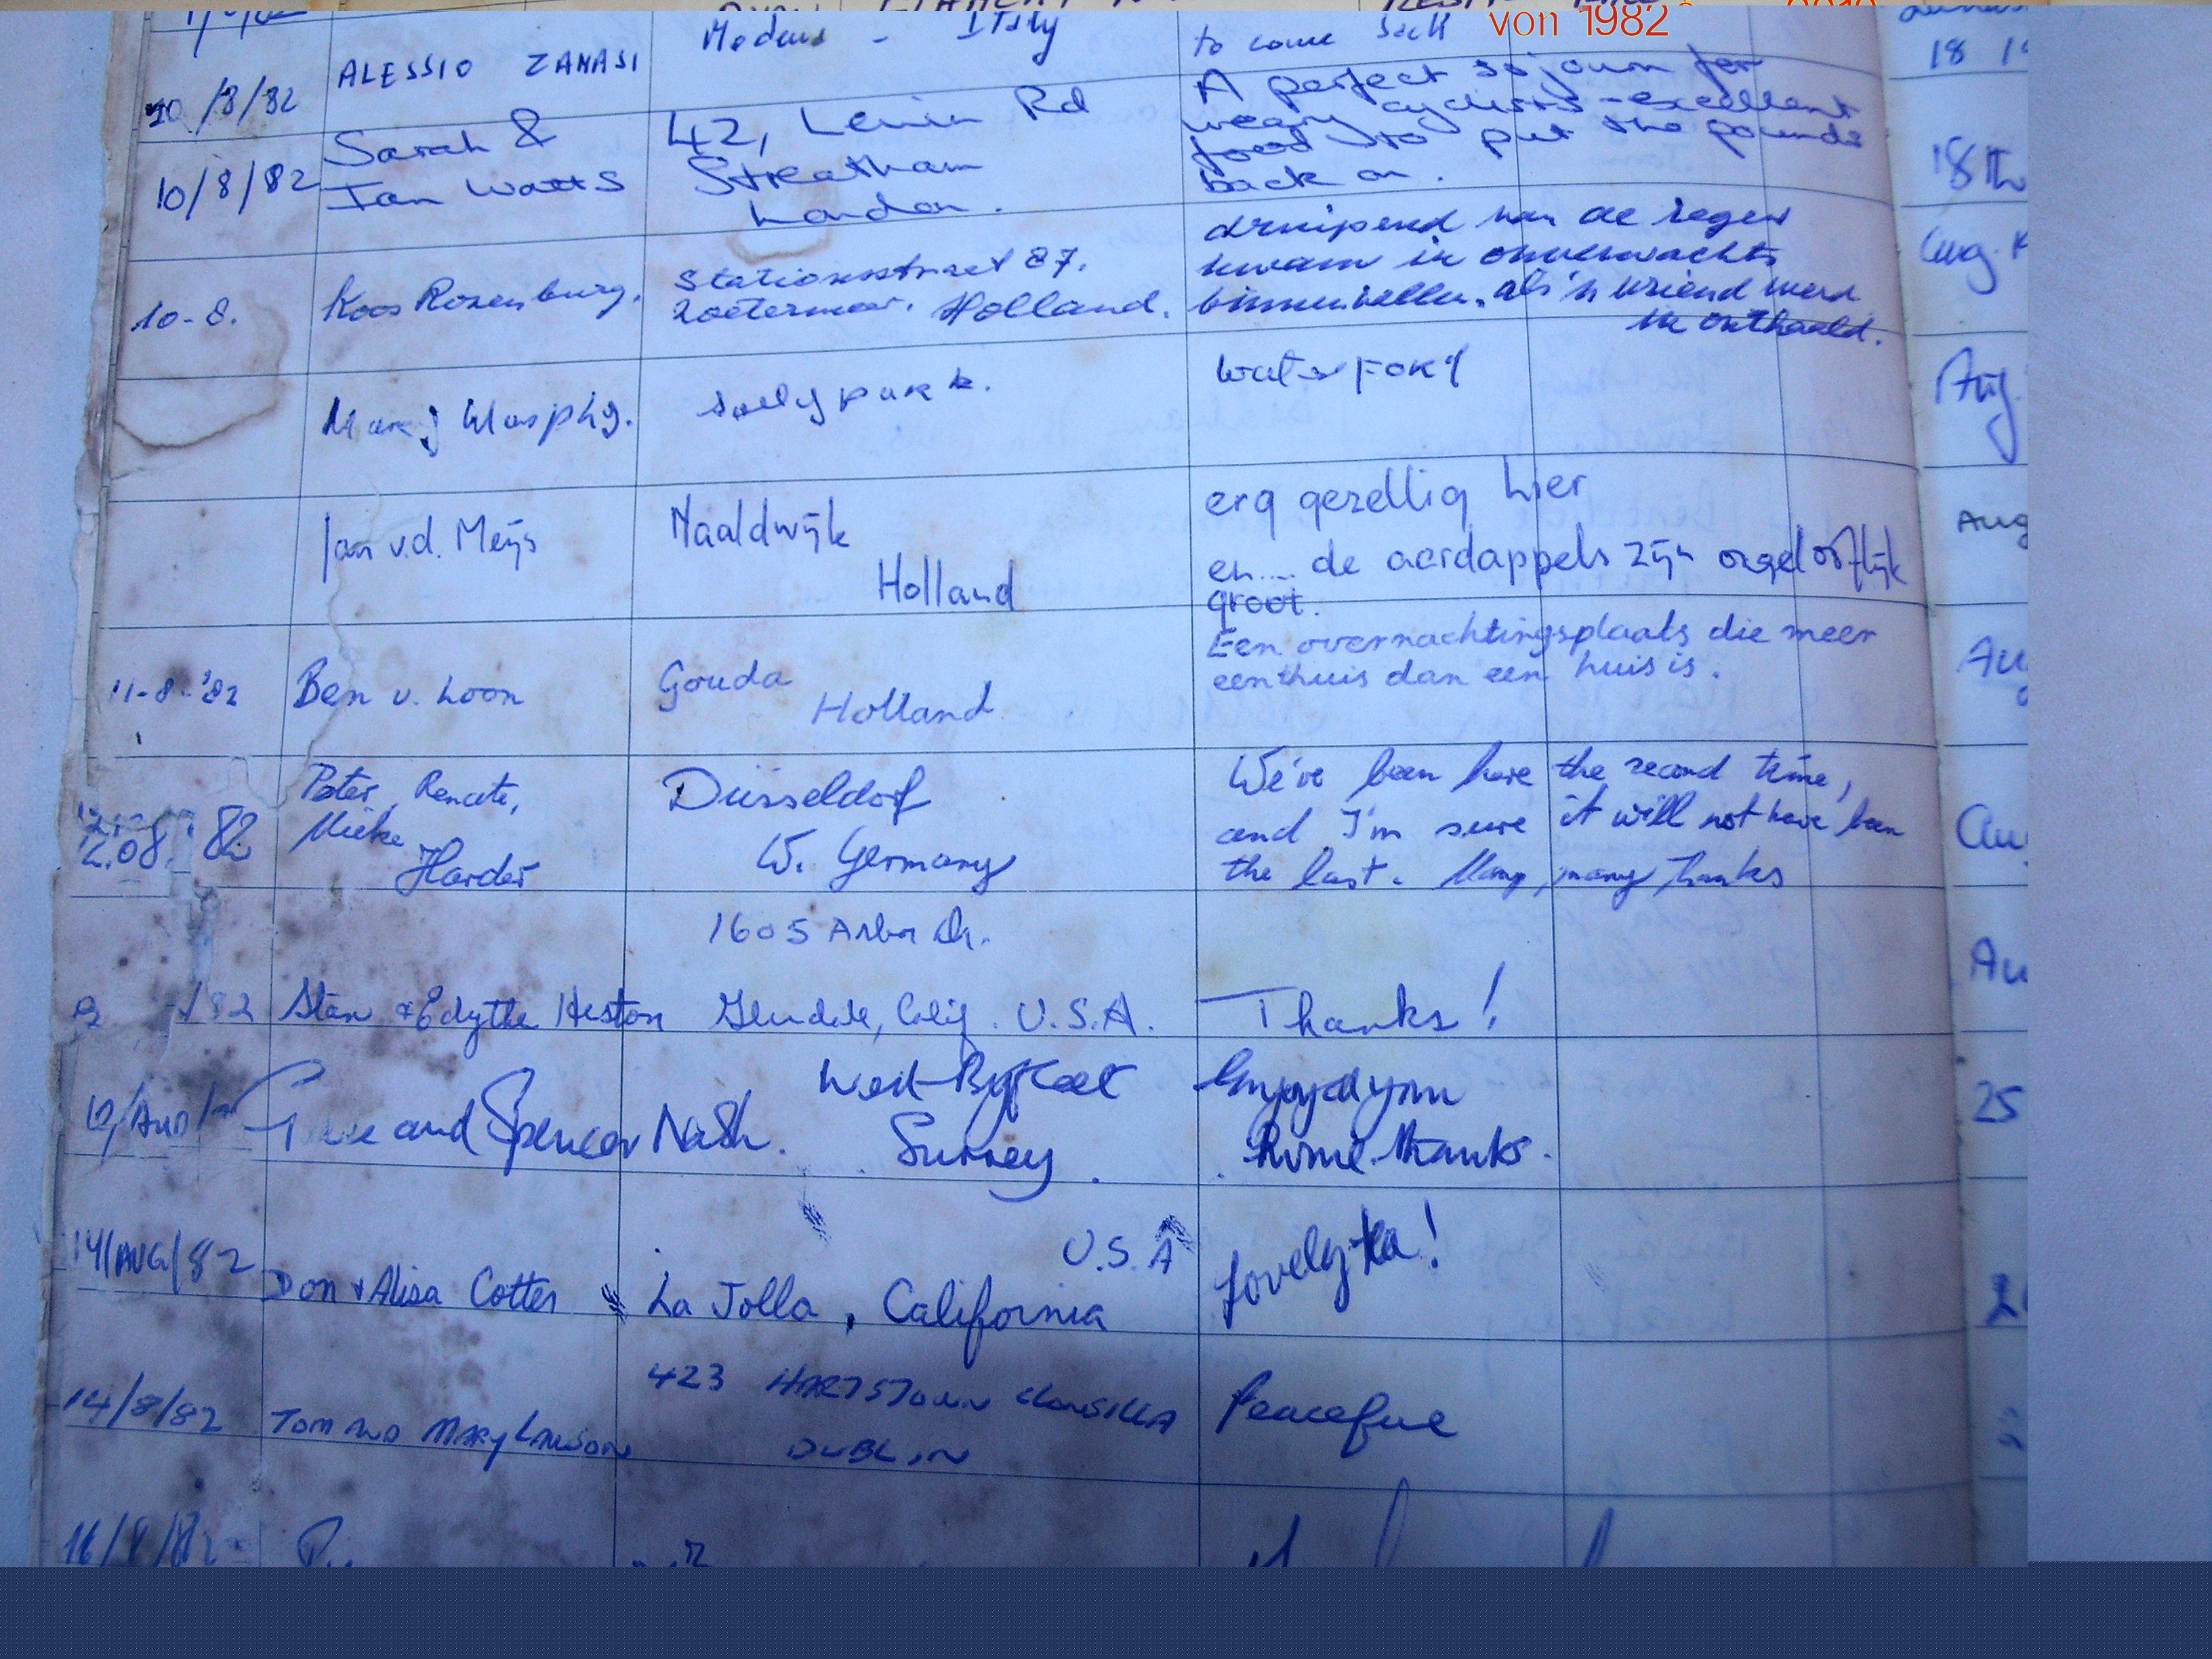 von 1982
ALESSIO ZANASI Modena - Italy to come back
10/8/82
A perfect sojourn for
weary cyclists - excellent
food to put the pounds
back on.
10/8/82 Sarah & Ian Watts 42, Leigh Rd
Streatham
London.
druipend van de regen
kwam ik onverwachts
binnenvallen. als 'n vriend werd
ik onthaald.
10-8. Koos Rozenburg. Stationsstraat 87.
Zoetermeer. Holland.
Jan v.d. Meijs Naaldwijk
Holland
erg gezellig hier
en.... de aardappels zijn ongelooflijk
groot.
11-8-'82 Ben v. Loon Gouda
Holland
Een overnachtingsplaats die meer
een thuis dan een huis is.
82 Peter, Renate,
Mieke
Harder
Düsseldorf
W. Germany
We've been here the second time,
and I'm sure it will not have been
the last. Many, many thanks
1605 Arbor Dr.
82 Stan & Edythe Heston Glendale, Calif. U.S.A. Thanks!
12/Aug and Spencer Nash. West Byfleet
Surrey.
Enjoyed your
thanks.
14/AUG/82 Don & Alisa Cotter La Jolla, California
U.S.A
Lovely tea!
14/8/82 TOM AND MARY LAWSON 423 HARTSTOWN CLONSILLA
DUBLIN
Peaceful
16/8/82
18
18th
Aug.
Aug
25